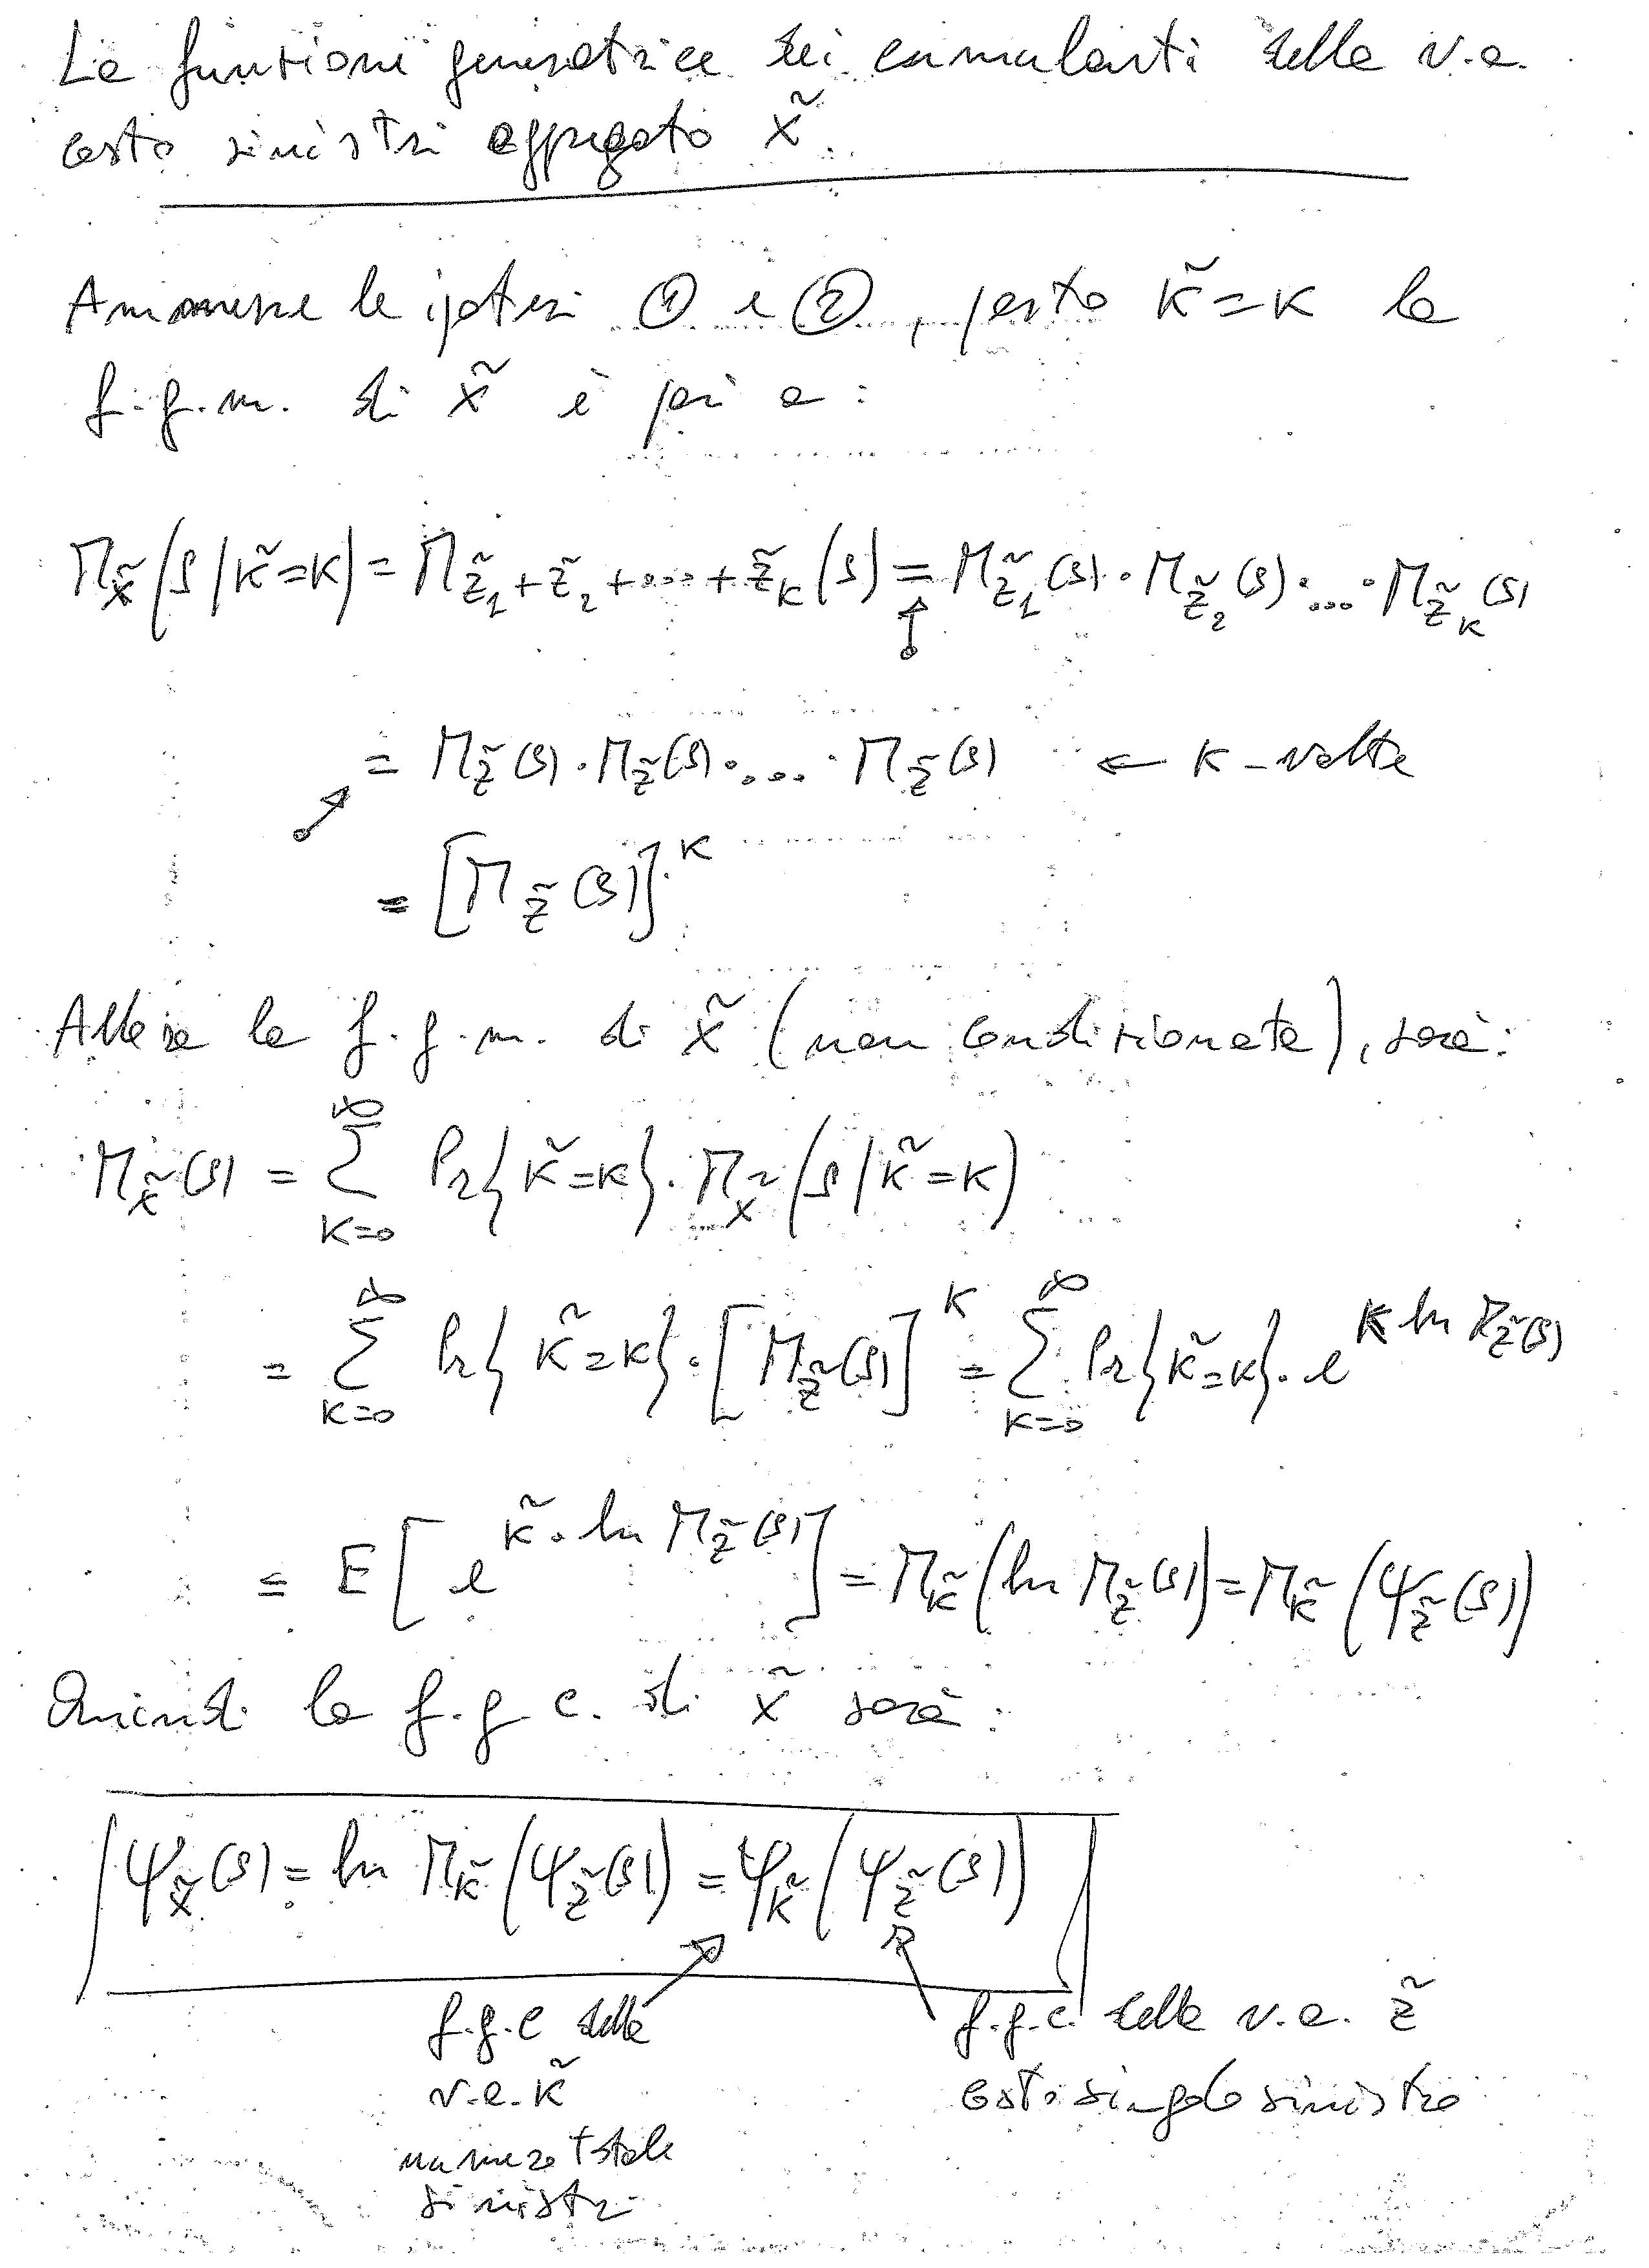 La funzione generatrice dei cumulanti della v.a.
costo sinistri aggregato X̃
Ammesse le ipotesi ① e ②, posto K̃=K la
f.g.m. di X̃ è pari a:
M_X̃(s/K̃=K) = M_Z̃₁+Z̃₂+...+Z̃_K(s) = M_Z̃₁(s)·M_Z̃₂(s)·...·M_Z̃_K(s)
= M_Z̃(s)·M_Z̃(s)·...·M_Z̃(s) ← K-volte
= [M_Z̃(s)]^K
Allora la f.g.m. di X̃ (non condizionata), sarà:
M_X̃(s) = ∑_{K=0}^{∞} Pr{K̃=K}·M_X̃(s/K̃=K)
= ∑_{K=0}^{∞} Pr{K̃=K}·[M_Z̃(s)]^K = ∑_{K=0}^{∞} Pr{K̃=K}·e^{K ln M_Z̃(s)}
= E[e^{K̃·ln M_Z̃(s)}] = M_K̃(ln M_Z̃(s)) = M_K̃(Ψ_Z̃(s))
Quindi la f.g.c. di X̃ sarà:
Ψ_X̃(s) = ln M_K̃(Ψ_Z̃(s)) = Ψ_K̃(Ψ_Z̃(s))
f.g.c della f.g.c. della v.a. Z̃
v.a. K̃ costo singolo sinistro
numero totale
sinistri